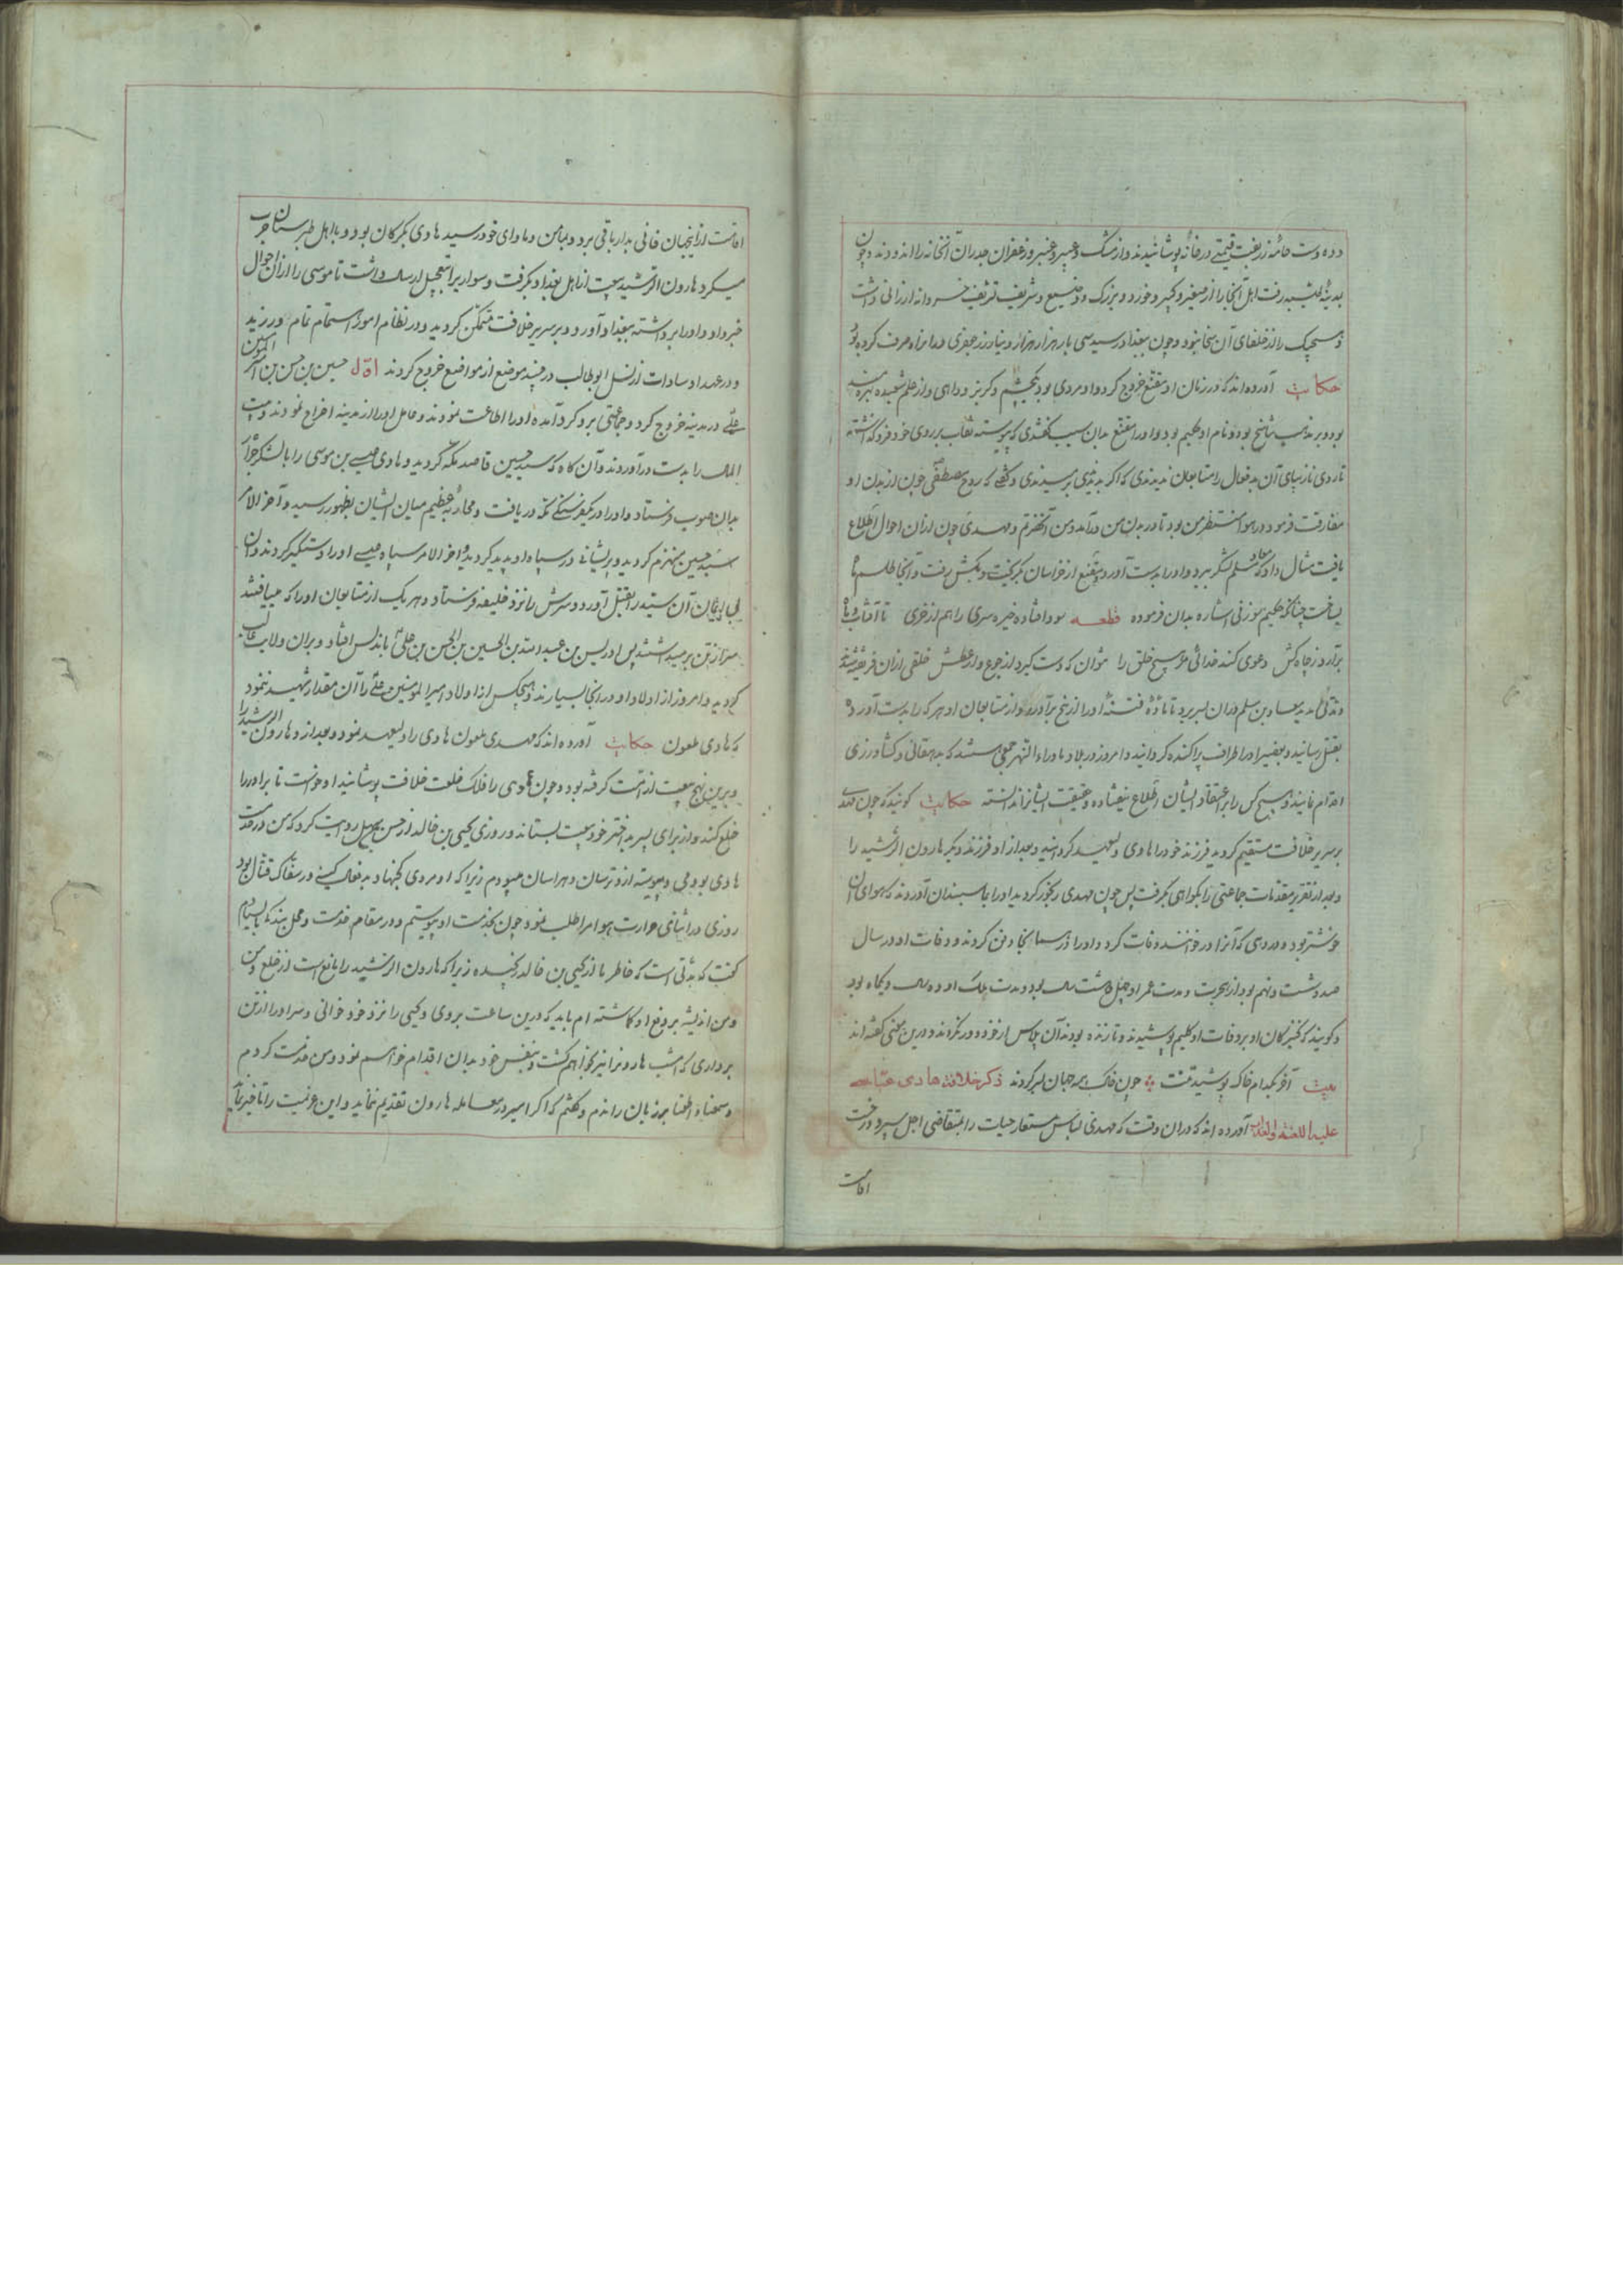 و ده دست جامه زربفت قیمتی در خانه پوشانیدند و از مشک و عبیر و عنبر و زعفران جدران آنخانه را اندودند و چون
بمدینه طیبه رفت اهل آنجا را از صغیر و کبیر و خورد و بزرک و وضیع و شریف تشریف خسروانه ارزانی داشت
و هیچیک را از خلفای آن سخا نبود و چون ببغداد رسید سی بار هزار هزار دینار زر جعفری در انراه صرف کرده بود
حکایت آورده‌اند که در زمان او مقنع خروج کرد و او مردی بود یکچشم و کربز و داهی و از علم شعبده بهره‌مند
بود و بر مذهب تناسخ بود و نام او حکیم بود و او را مقنع بدان سبب گفتندی که پیوسته نقاب بر روی خود فرو گذاشته
تا روی نازیبای آن بد فعال را متابعان ندیدندی که اگر بدیدندی برمیدندی و گفتی که روح مصطفی چون از بدن او
مفارقت فرمود در هوا منتظر من بود تا در بدن من درآمد و من آنحضرتم و مهدی چون از ان احوال اطلاع
یافت مثال داد که معاذ مسلم لشکر ببرد و او را بدست آورد و مقنع از خراسان بگریخت و بکش رفت و آنجا طلسم ماه
بساخت چنانکه حکیم سوزنی اشاره بدان فرموده قطعه سودا فتاده خیره سری را هم از خری تا آفتاب و ماه
برآرد ز چاه کش دعوی کند خدائی مر هیچ خلق را نتوان که دست گیرد از جوع و از عطش خلقی از ان فریفته شدند
و مدتی مدید معاذ بن مسلم در ان بسر برد تا مادّهٔ فتنهٔ او را از بیخ برآورد و از متابعان او هر که را بدست آورد
بقتل رسانید و بعضی را در اطراف پراکنده گردانید و امروز در بلاد ماوراء النهر جمعی هستند که بدهقانی و کشاورزی
اقدام نمایند و هیچ کس را بر اعتقاد ایشان اطلاع نیفتاده و حقیقت ایشانرا ندانسته حکایت گویند که چون مهدی
بر سریر خلافت مستقیم گردید فرزند خود را هادی ولیعهد گردانید و بعد از او فرزند دیگر هارون الرشید را
و بعد از تقریر مقدمات جماعتی را بگواهی بگرفت پس چون مهدی رنجور گردید او را باسبندان آوردند که هوای آن
خوشتر بود و در دهی که آنرا در خوانند وفات کرد و او را در هم آنجا دفن کردند و وفات او در سال
صد و شصت و نهم بود از هجرت و مدت عمر او چهل و هشت سال بود و مدت ملک او ده سال و یکماه بود
و گویند که کنیزکان او بر وفات او گلیم پوشیدند و تا زنده بودند آن پلاس از خود دور نکردند و درین معنی گفته‌اند
بیت آخر بکدام خاک پوشید تنت چون خاک همه جهان بسر کردند ذکر خلافت هادی عباسی
علیه اللعنه والعذاب آورده‌اند که در ان وقت که مهدی لباس مستعار حیات را بمتقاضی اجل سپرد و رخت
اقامت
اقامت از اینجهان فانی بدار باقی برد و بمأمن و ماوای خود رسید هادی بگرگان بود و با اهل طبرستان حرب
میکرد هارون الرشید بیعت از اهل بغداد بگرفت و سواریرا بتعجیل ارسال داشت تا موسی را از ان احوال
خبر داد و او را برداشته ببغداد آورد و بر سریر خلافت متمکن گردید و در نظام امور اهتمام تمام ورزید
و در عهد او سادات از نسل ابو طالب در چند موضع از مواضع خروج کردند اوّل حسین بن حسن بن امیر المؤمنین
علی در مدینه خروج کرد و جماعتی برو گرد آمده او را اطاعت نمودند و عامل او را از مدینه اخراج نمودند و بیت
المال را بدست درآوردند و آن گاه که سید حسین قاصد مکه گردید و هادی عیسی بن موسی را با لشکر جرّار
بدان صوب فرستاد و او را در یکفرسنگی مکه دریافت و محاربهٔ عظیم میان ایشان بظهور رسید و آخر الامر
سید حسین منهزم گردید و پریشانی در سپاه او پدید گردید و اخر الامر سپاه عیسی او را دستگیر کردند و آن
بی ایمان آن سید را بقتل آورد و سرش را نزد خلیفه فرستاد و هر یک از متابعان او را که مییافتند
سر از تن برمیداشتند پس ادریس بن عبد الله بن الحسین بن الحسن بن علی باندلس افتاد و بران ولایت غالب
گردید و امروز از اولاد او در انجا بسیارند و هیچکس از اولاد امیر المومنین علی را آن مقدار شهید ننمود
که هادی ملعون حکایت آورده‌اند که مهدی ملعون هادی را ولیعهد نمود و بعد از و هارون الرشید را
و برین نهج بیعت از امّت گرفته بود و چون هادی را فلک خلعت خلافت پوشانید او خواست تا برادر را
خلع کند و از برای پسر بد اختر خود بیعت بستاند و روزی یحیی بن خالد از حسن جمیل روایت کرد که من در خدمت
هادی بودمی و پیوسته ازو ترسان و هراسان میبودم زیرا که او مردی کج نهاد بد فعال کینه ور سفاک قتال بود
روزی در اثنای حرارت هوا مرا طلب نمود چون بخدمت او پیوستم و در مقام خدمت و محل بندگی بایستادم
گفت که مدّتی است که خاطر ما از یحیی بن خالد رنجیده زیرا که هارون الرشید را مانع است از خلع و من
و من اندیشه بر دفع او گماشته‌ام باید که درین ساعت بروی و یحیی را نزد خود خوانی و سر او را از تن
برداری که امشب هارونرا نیز بخواهم کشت و بنفس خود بدان اقدام خواهم نمود و من خدمت کردم
و سمعنا و اطعنا بر زبان راندم و گفتم که اگر امیر در معامله هارون تقدیم نماید و این عزیمت را تاخیر نماید